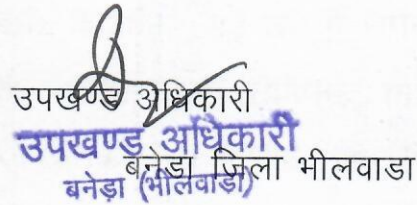 उपखण्ड अधिकारी
उपखण्ड अधिकारी
बनेडा जिला भीलवाडा
बनेड़ा (भीलवाड़ा)